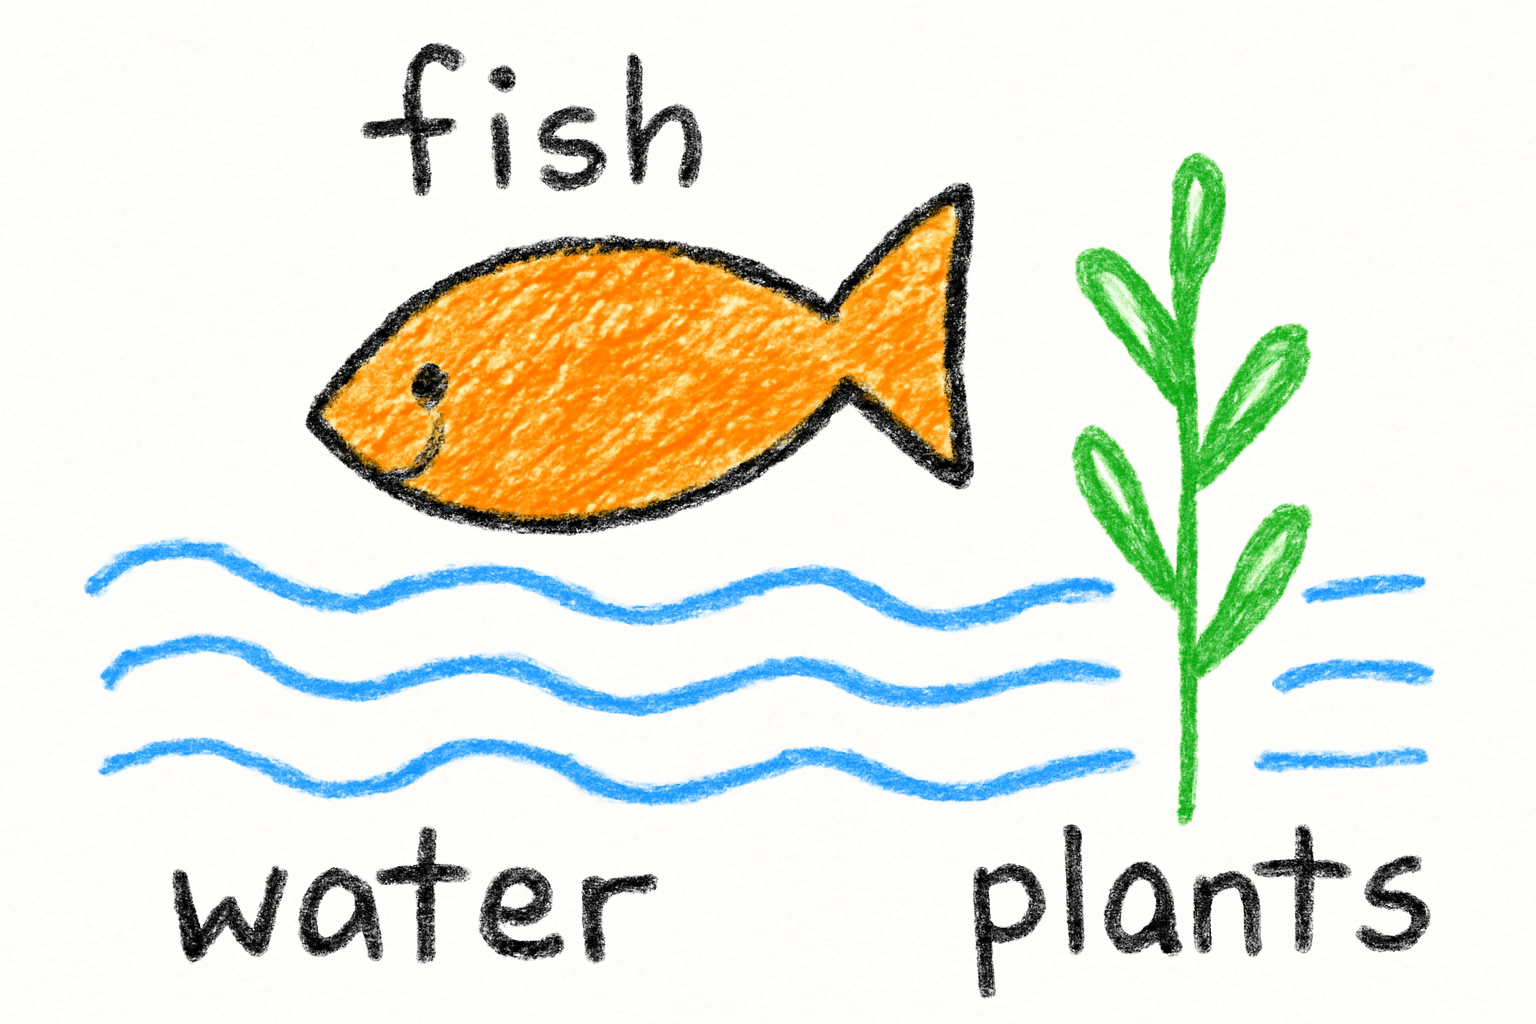 fish
water
plants